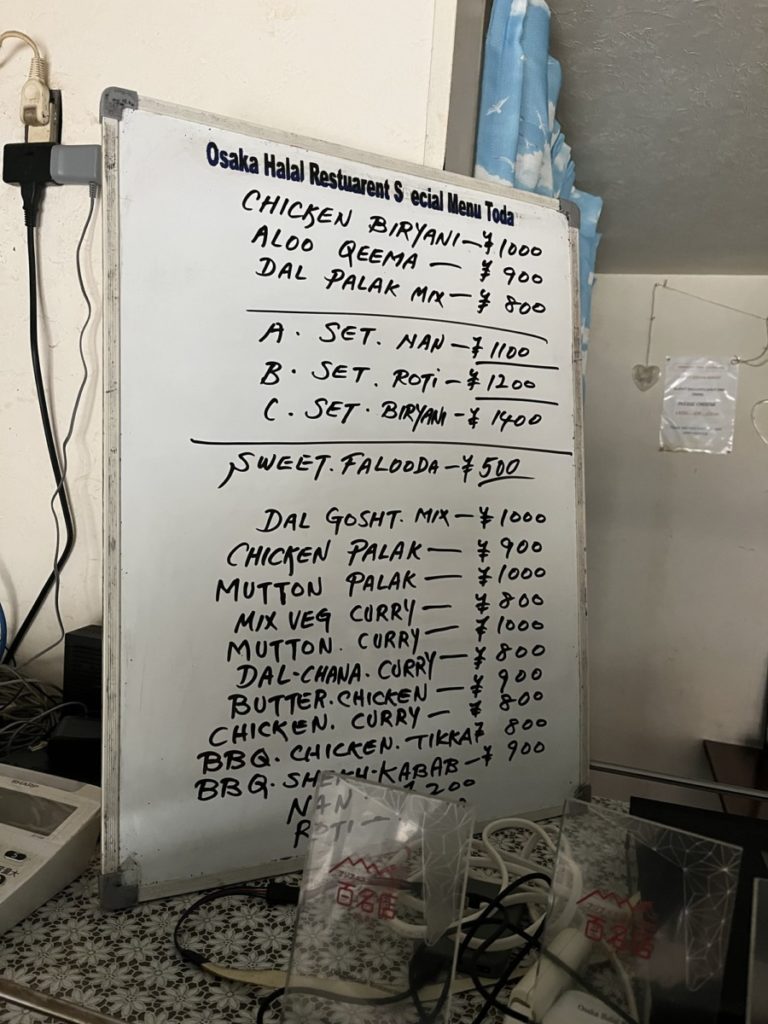 Osaka Halal Restuarent S ecial Menu Toda
CHICKEN BIRYANI - ¥ 1000
ALOO QEEMA - ¥ 900
DAL PALAK MIX - ¥ 800
A. SET. NAN - ¥ 1100
B. SET. ROTI - ¥ 1200
C. SET. BIRYANI - ¥ 1400
SWEET. FALOODA - ¥ 500
DAL GOSHT. MIX - ¥ 1000
CHICKEN PALAK - ¥ 900
MUTTON PALAK - ¥ 1000
MIX VEG CURRY - ¥ 800
MUTTON. CURRY - ¥ 1000
DAL-CHANA. CURRY - ¥ 800
BUTTER. CHICKEN - ¥ 900
CHICKEN. CURRY - ¥ 800
BBQ. CHICKEN. TIKKA ¥ 800
BBQ. SHEIKH-KABAB - ¥ 900
NAN - ¥ 200
ROTI -
SHARP
百名店
百名店
Osaka Halal
PLEASE